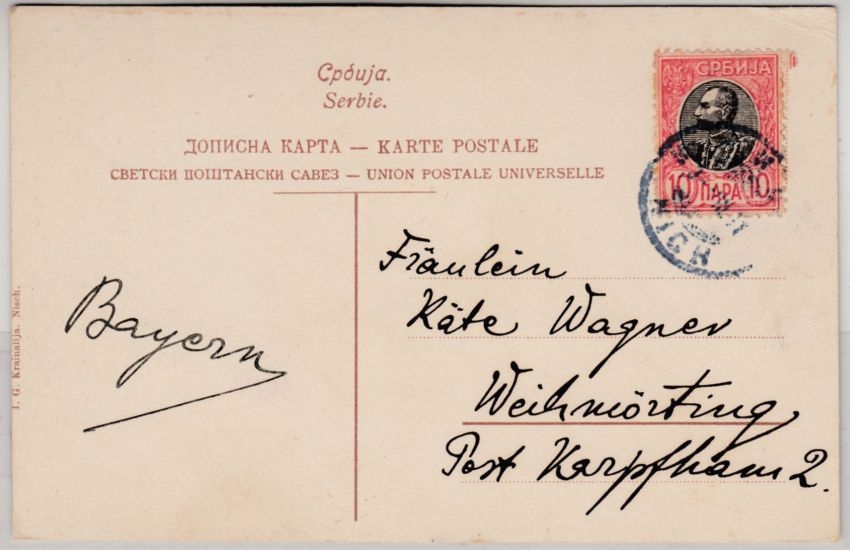 Србија.
Serbie.
ДОПИСНА КАРТА — KARTE POSTALE
СВЕТСКИ ПОШТАНСКИ САВЕЗ — UNION POSTALE UNIVERSELLE
СРБИЈА
10 ПАРА 10
Fräulein
Käte Wagner
Weihmörting
Post Karpfham 2.
Bayern
I. G. Kraiunlija. Nisch.